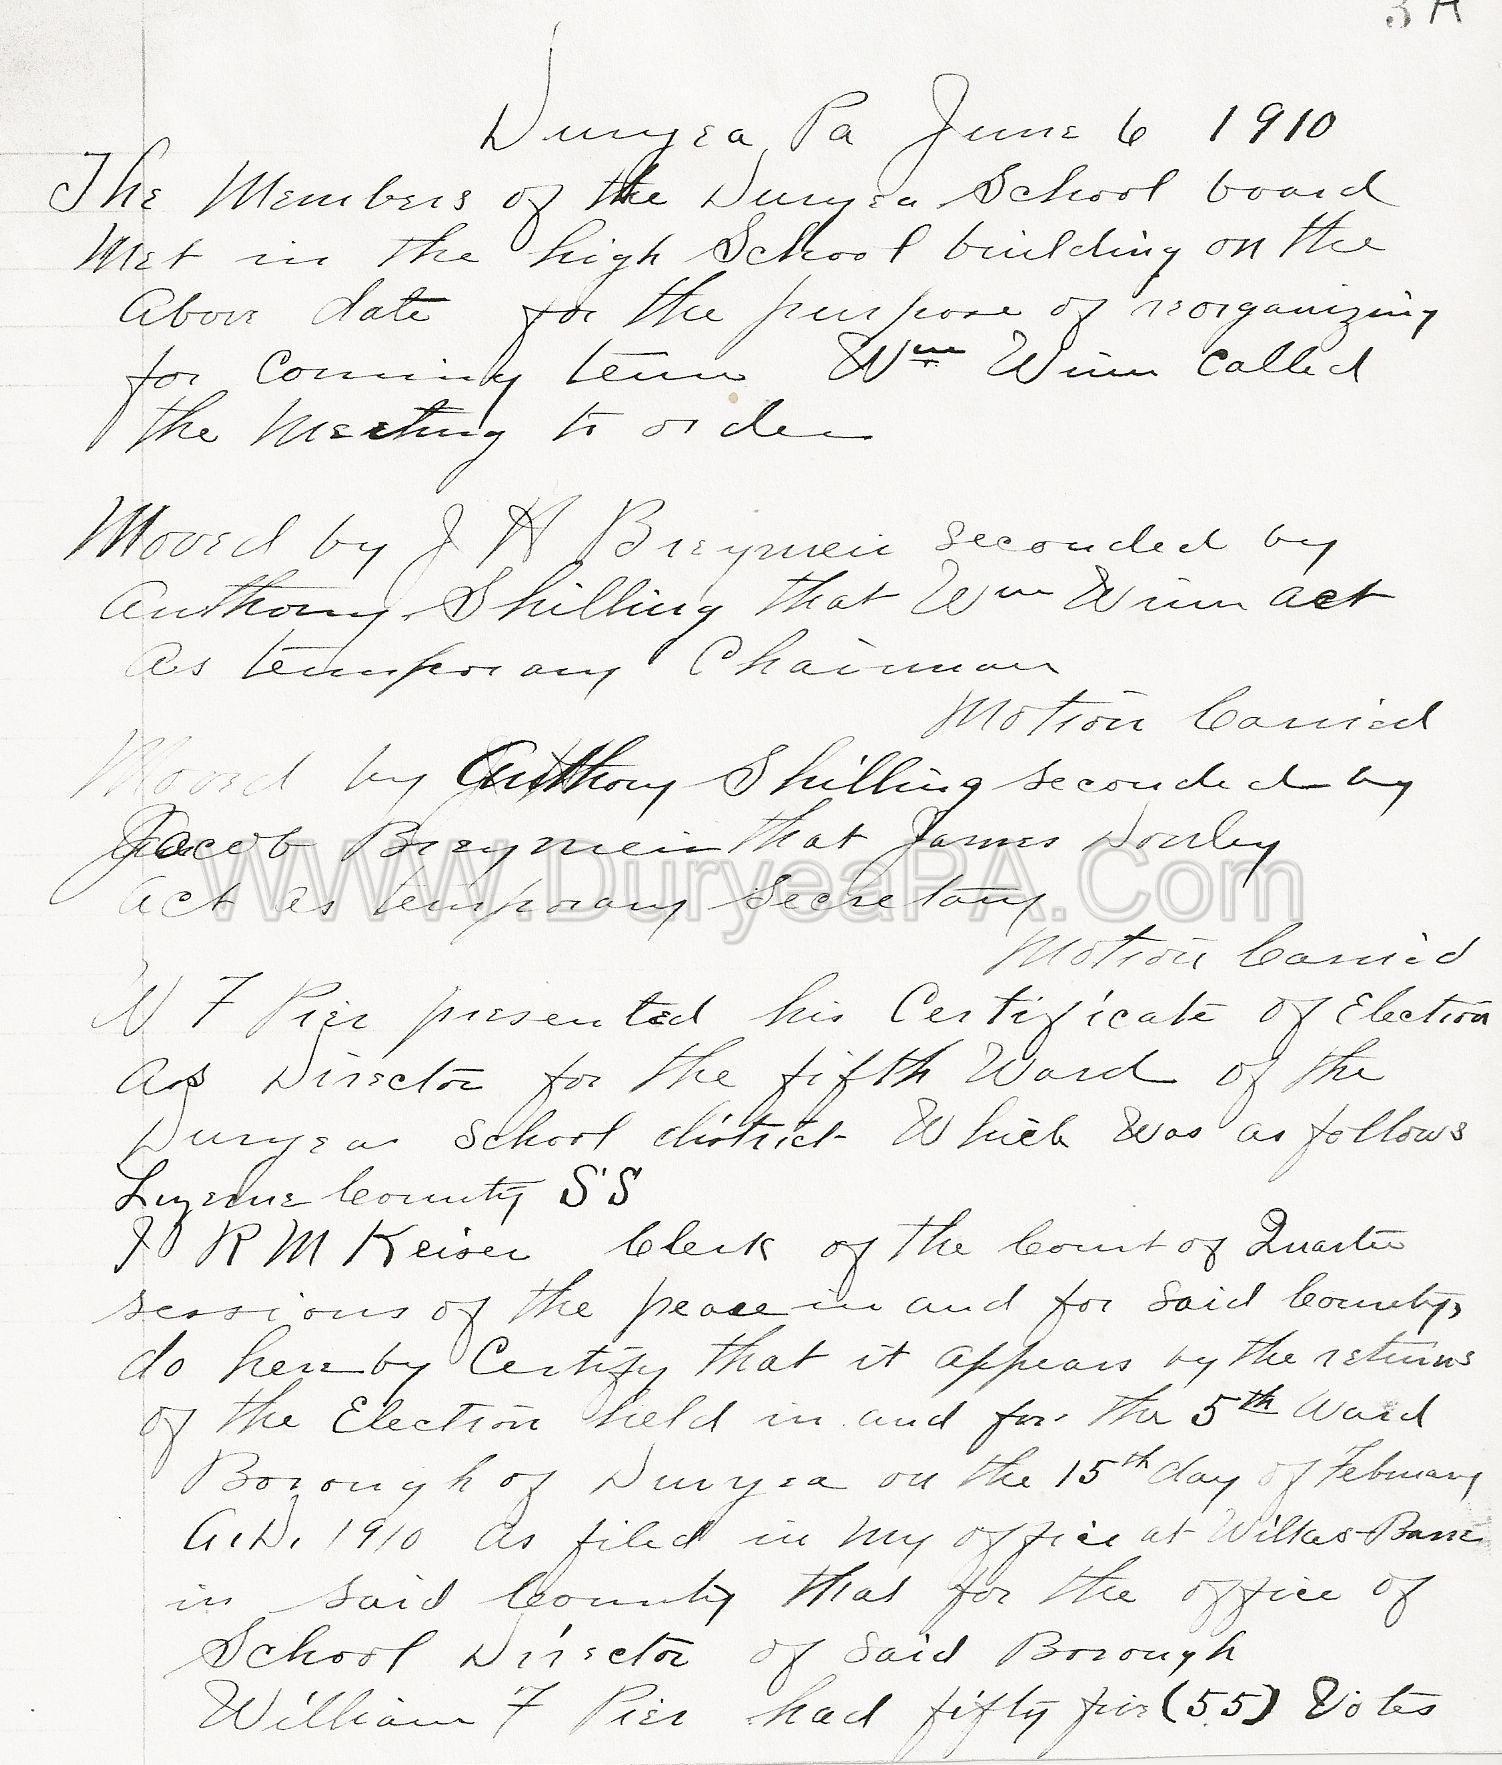 3A
Duryea Pa June 6 1910
The Members of the Duryea School board
Met in the high School building on the
Above date for the purpose of reorganizing
for Coming term Wm Winn called
the Meeting to order
Moved by J H Breymeir seconded by
Anthony Shilling that Wm Winn act
As temporary Chairman
Motion Carried
Moved by Anthony Shilling seconded by
Jacob Breymeir that James Donley
act as temporary Secretary
WWW.DuryeaPA.Com
Motion Carried
W F Pier presented his Certificate of Election
As Director for the fifth Ward of the
Duryea School district Which Was as follows
Luzerne County SS
I R M Keiser Clerk of the Court of Quarter
sessions of the peace in and for Said County,
do hereby Certify that it appears by the returns
of the Election held in and for the 5th Ward
Borough of Duryea on the 15th day of February
A.D. 1910 As filed in my office at Wilkes-Barre
in Said County that for the office of
School Director of Said Borough
William F Pier had fifty five (55) Votes